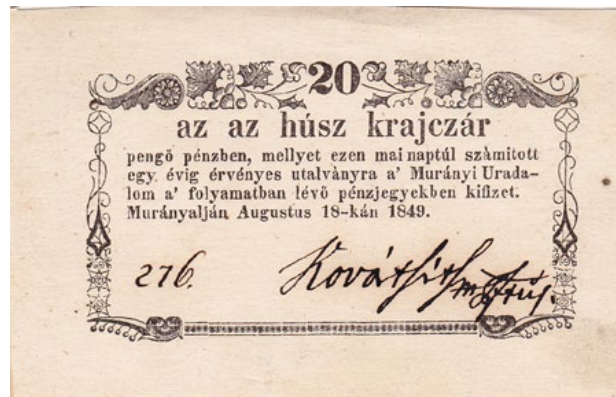 20
az az húsz krajczár
pengő pénzben, mellyet ezen mai naptúl számitott
egy. évig érvényes utalványra a' Murányi Urada-
lom a' folyamatban lévő pénzjegyekben kifizet.
Murányalján Augustus 18-kán 1849.
276.